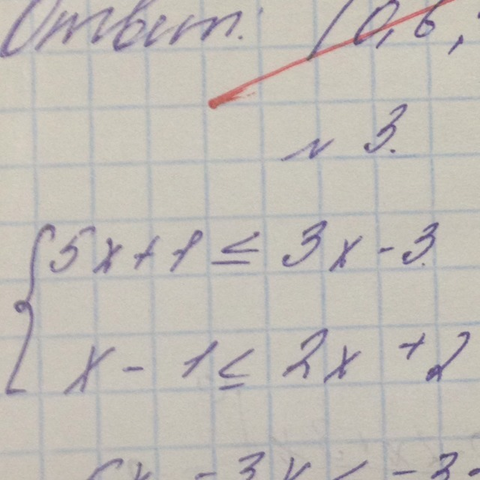 Ответ: [0,6;
№ 3.
{ 5x+1 ≤ 3x-3
x - 1 ≤ 2x +2